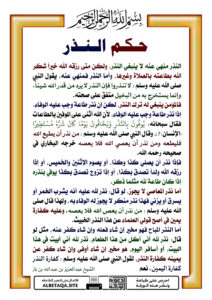 بسم الله الرحمن الرحيم
حكم النذر
النذر منهي عنه لا ينبغي النذر، ولكن متى رزقه الله خيرا شكر
الله بطاعته بالصلاة وغيرها، وأما النذر فمنهي عنه، يقول النبي
صلى الله عليه وسلم: لا تنذروا فإن النذر لا يرد من قدر الله شيئا،
وإنما يستخرج به من البخيل متفق على صحته.
فالمؤمن ينبغي له ترك النذر، لكن إن نذر طاعة وجب عليه الوفاء،
إذا نذر طاعة وجب عليه الوفاء، لأن الله أثنى على الموفين بالطاعات
فقال سبحانه: يوفون بالنذر ويخافون يوما كان شره مستطيرا
الإنسان:7، وقال النبي صلى الله عليه وسلم: من نذر أن يطيع الله
فليطعه ومن نذر أن يعصي الله فلا يعصه خرجه البخاري في
صحيحه رحمه الله.
فإذا نذر أن يصلي كذا وكذا، أو يصوم الاثنين والخميس، أو إذا
رزقه الله ولدا تصدق بكذا، أو إذا تزوج تصدق بكذا يوفي بنذره
إذا كان طاعة لله مثلما ذكر.
أما نذر المعاصي لا يجوز، لو قال: نذر لله عليه أنه يشرب الخمر أو
يسرق أو يزني فهذا نذر منكر لا يجوز له الوفاء به، ولهذا قال صلى
الله عليه وسلم: من نذر أن يعصي الله فلا يعصه، وعليه كفارة
يمين في أصح قولي العلماء عن هذا النذر الخبيث
أما النذر المباح فهو مخير إن شاء فعله وإن شاء كفر عنه، مثل لو
قال: نذر لله أني آكل من هذا الطعام، نذر لله أني أبيت في هذا
البيت أو أسافر اليوم، هو مخير إن شاء أوفى وإن شاء كفر عن
يمينه كفارة النذر، لقول النبي صلى الله عليه وسلم: كفارة النذر
كفارة اليمين، نعم
الشيخ عبدالعزيز بن عبدالله بن باز
ALBETAQA.SITE